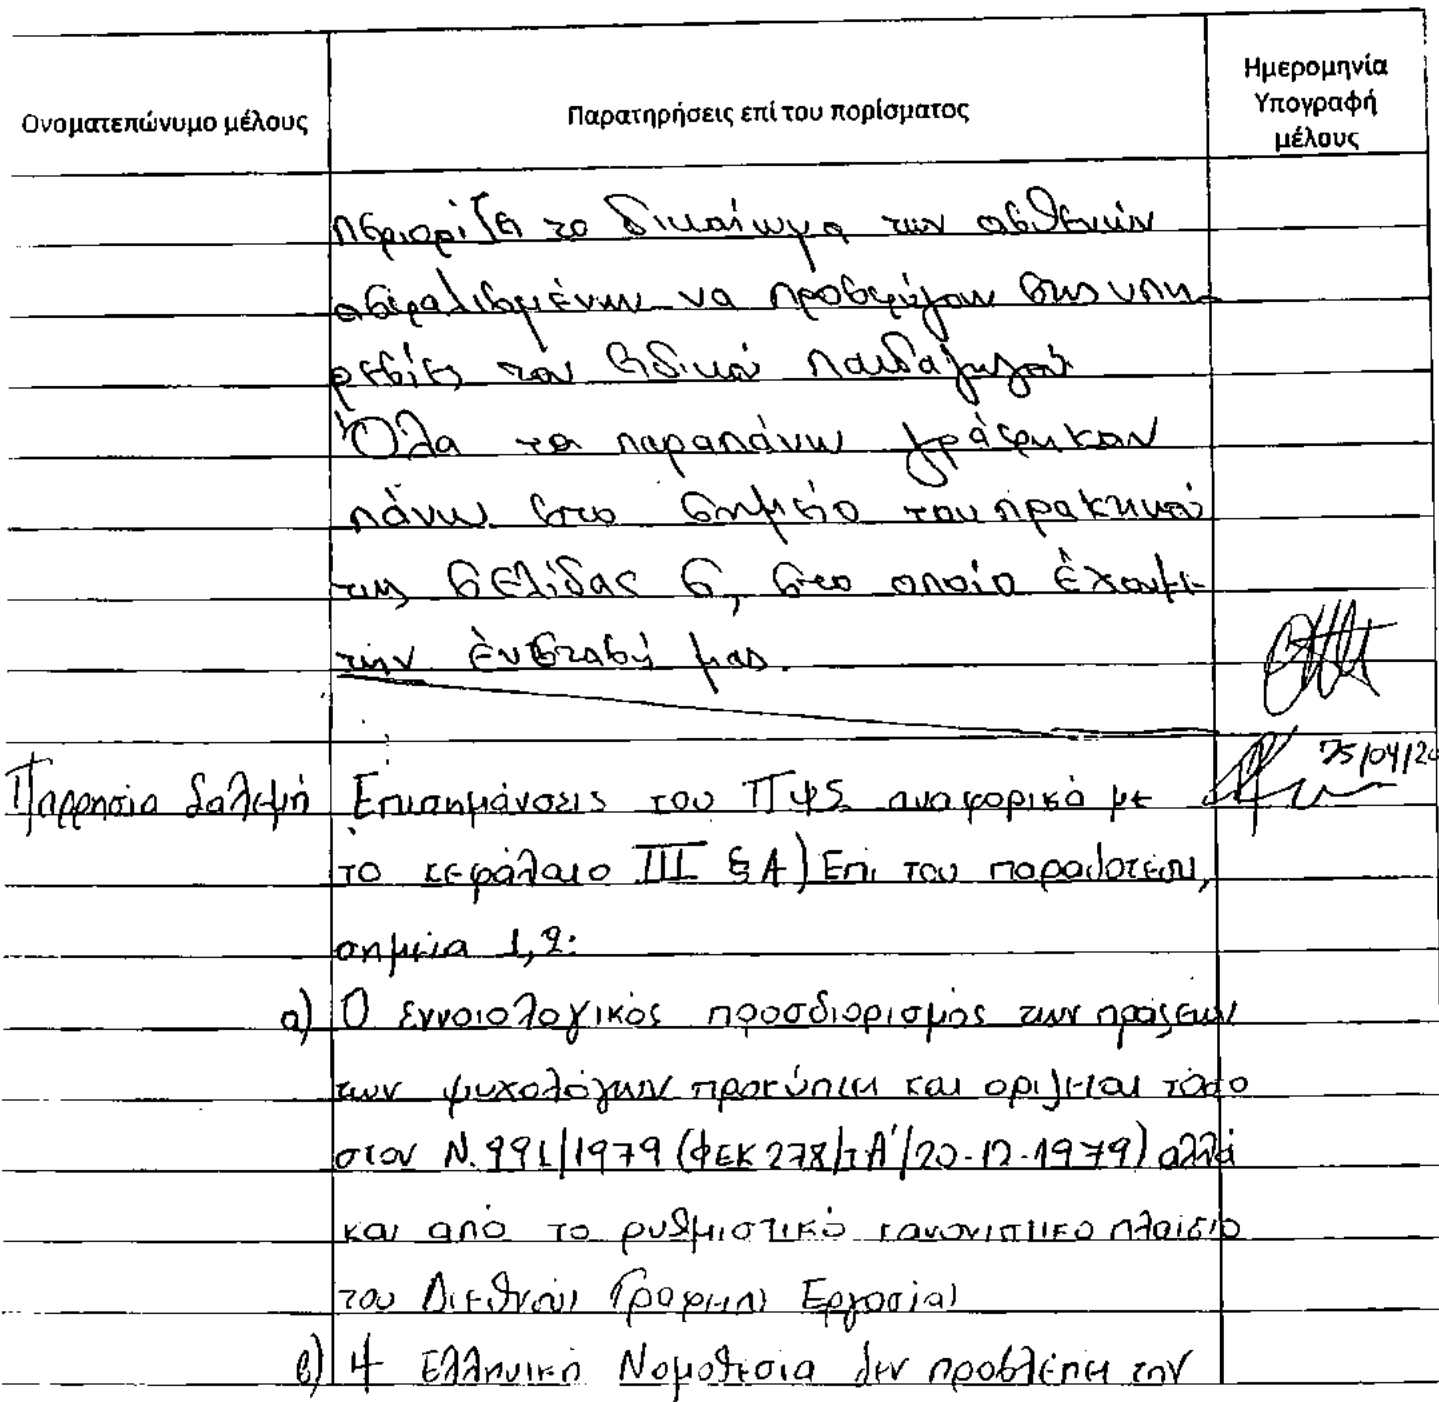 Ονοματεπώνυμο μέλους
Παρατηρήσεις επί του πορίσματος
Ημερομηνία
Υπογραφή
μέλους
περιορίζει το δικαίωμα των ασθενών
ασφαλισμένων να προσφύγουν στις υπη-
ρεσίες του ειδικού παιδαγωγού
Όλα τα παραπάνω γράφηκαν
πάνω στο σημείο του πρακτικού
της σελίδας 6, στο οποίο έχουμε
την ένστασή μας.
Παρρησία Σαλεμή
Επισημάνσεις του ΠΨΣ αναφορικά με
το κεφάλαιο III §Α) Επί του παραδοτέου,
σημεία 1,2:
α) Ο εννοιολογικός προσδιορισμός των πράξεων
των ψυχολόγων προκύπτει και ορίζεται τόσο
στον Ν. 991/1979 (ΦΕΚ 278/τΑ'/20-12-1979) αλλά
και από το ρυθμιστικό κανονιστικό πλαίσιο
του Διεθνούς Γραφείου Εργασίας
β) Η Ελληνική Νομοθεσία δεν προβλέπει την